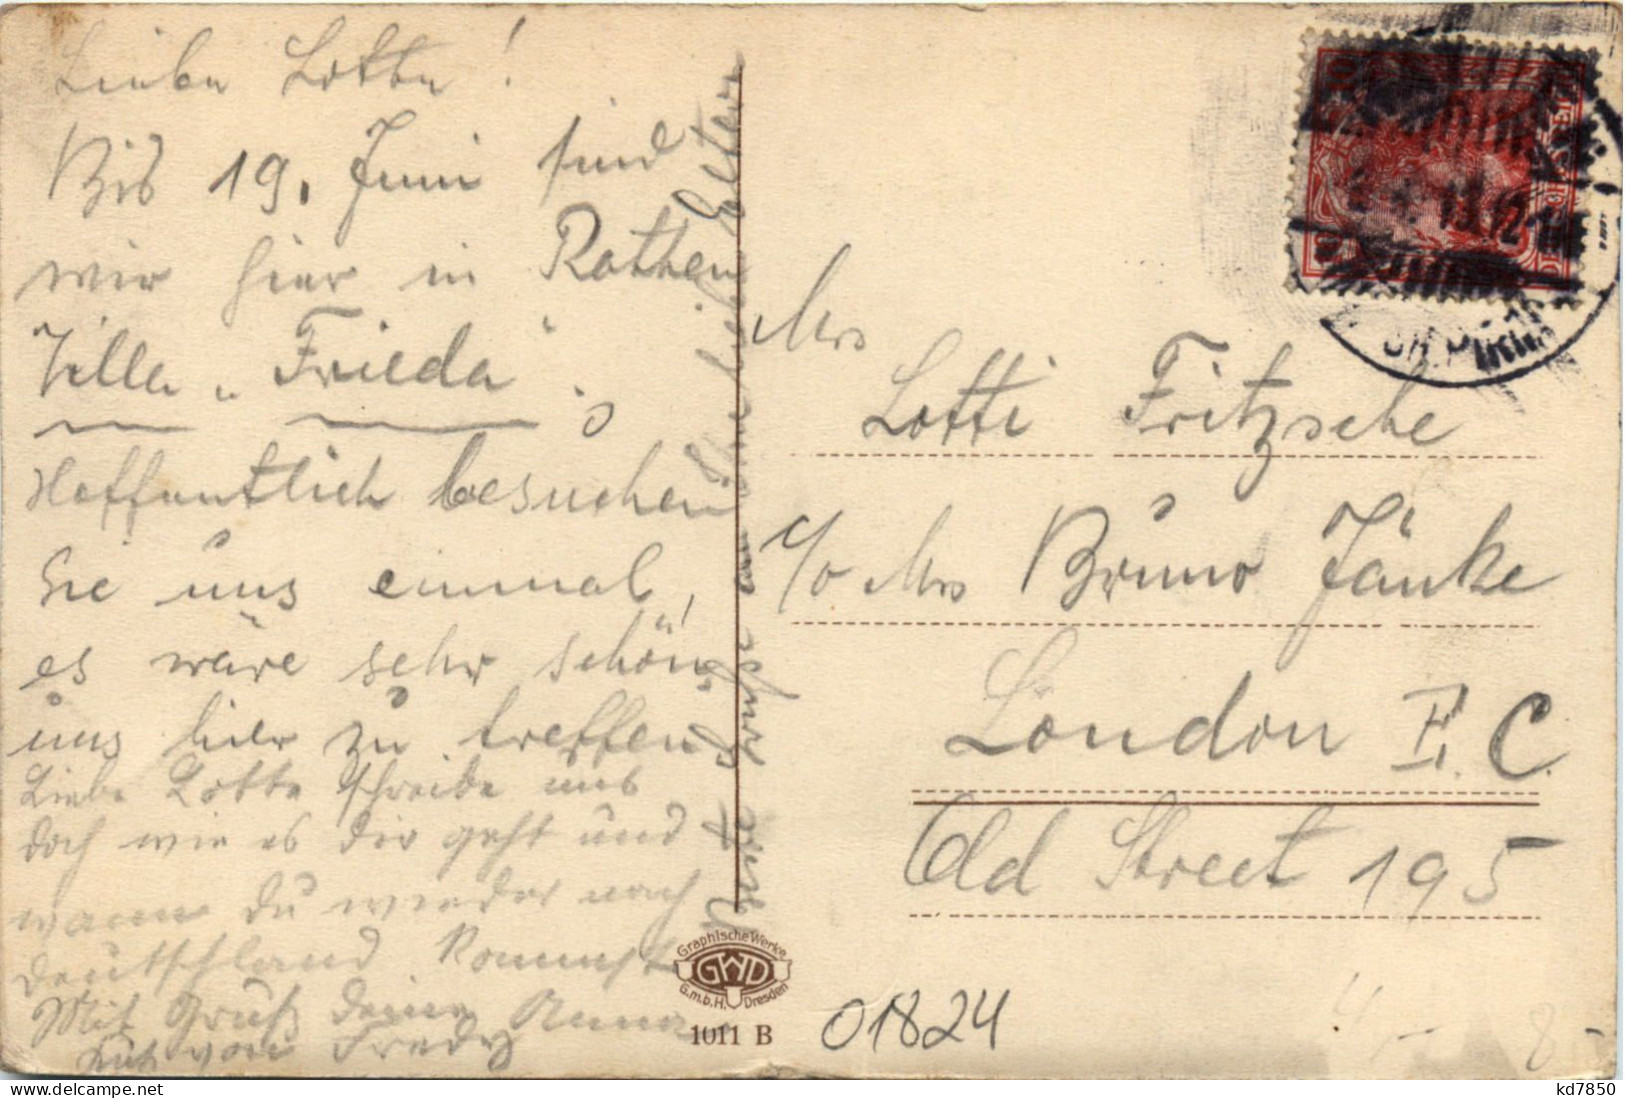 Liebe Lotte!
Bis 19. Juni sind
wir hier in Rathen
Villa „Frieda“.
Hoffentlich besuchen
Sie uns einmal,
es wäre sehr schön,
uns hier zu treffen
Liebe Lotte schreibe uns
doch wie es Dir geht und
wann Du wieder nach
Deutschland kommst
Mit Gruß Deine Anna
von Fredy
Eltern
Mrs
Lotti Fritzsche
c/o Mrs Bruno Jänke
London E. C.
Old Street 195
Graphische Werke
GWD
G.m.b.H. Dresden
1011 B
01824
4,-
8-
kd7850